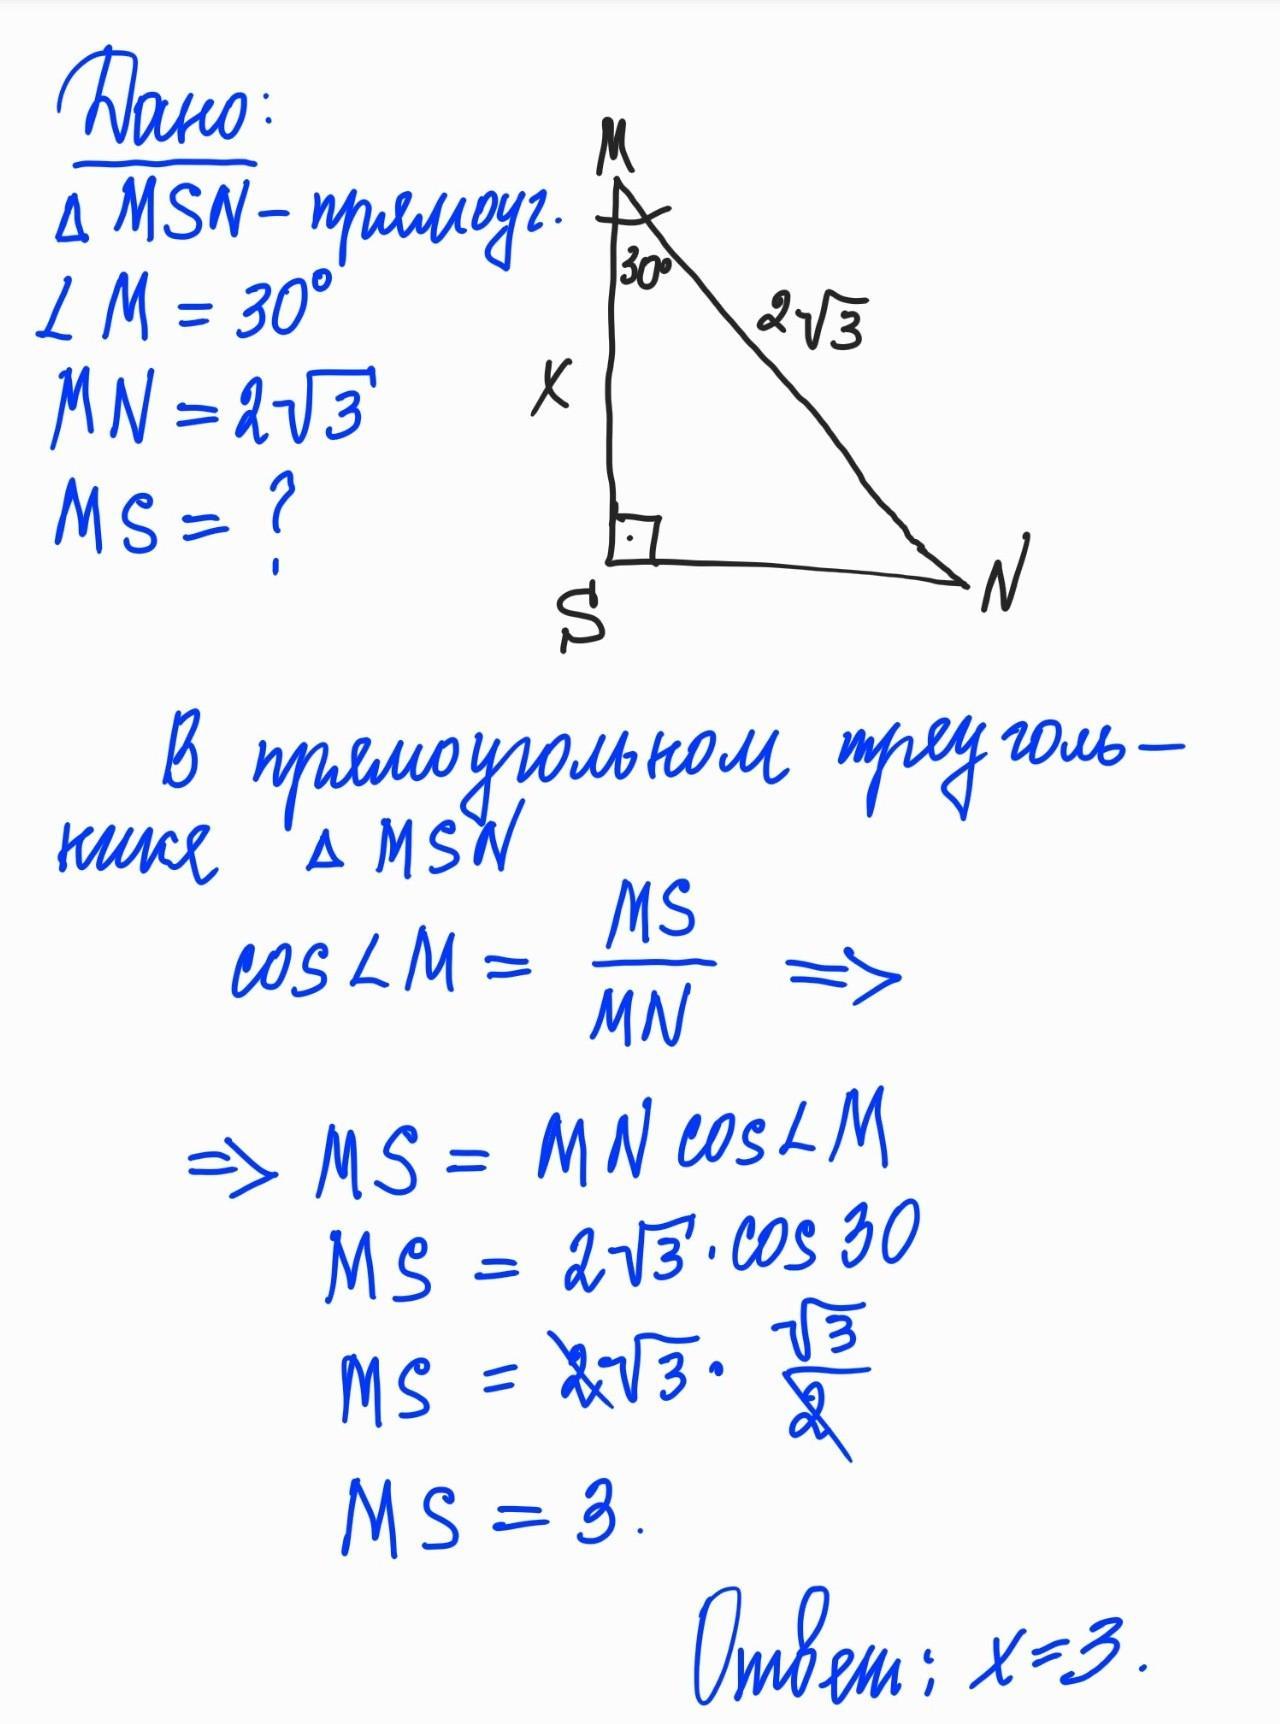 Дано:
Δ MSN - прямоуг.
∠ M = 30°
MN = 2√3
MS = ?
M
30°
2√3
x
S
N
В прямоугольном треуголь-
нике Δ MSN
cos ∠ M = MS/MN ⇒
⇒ MS = MN cos ∠ M
MS = 2√3 · cos 30
MS = 2√3 · √3/2
MS = 3.
Ответ: x=3.